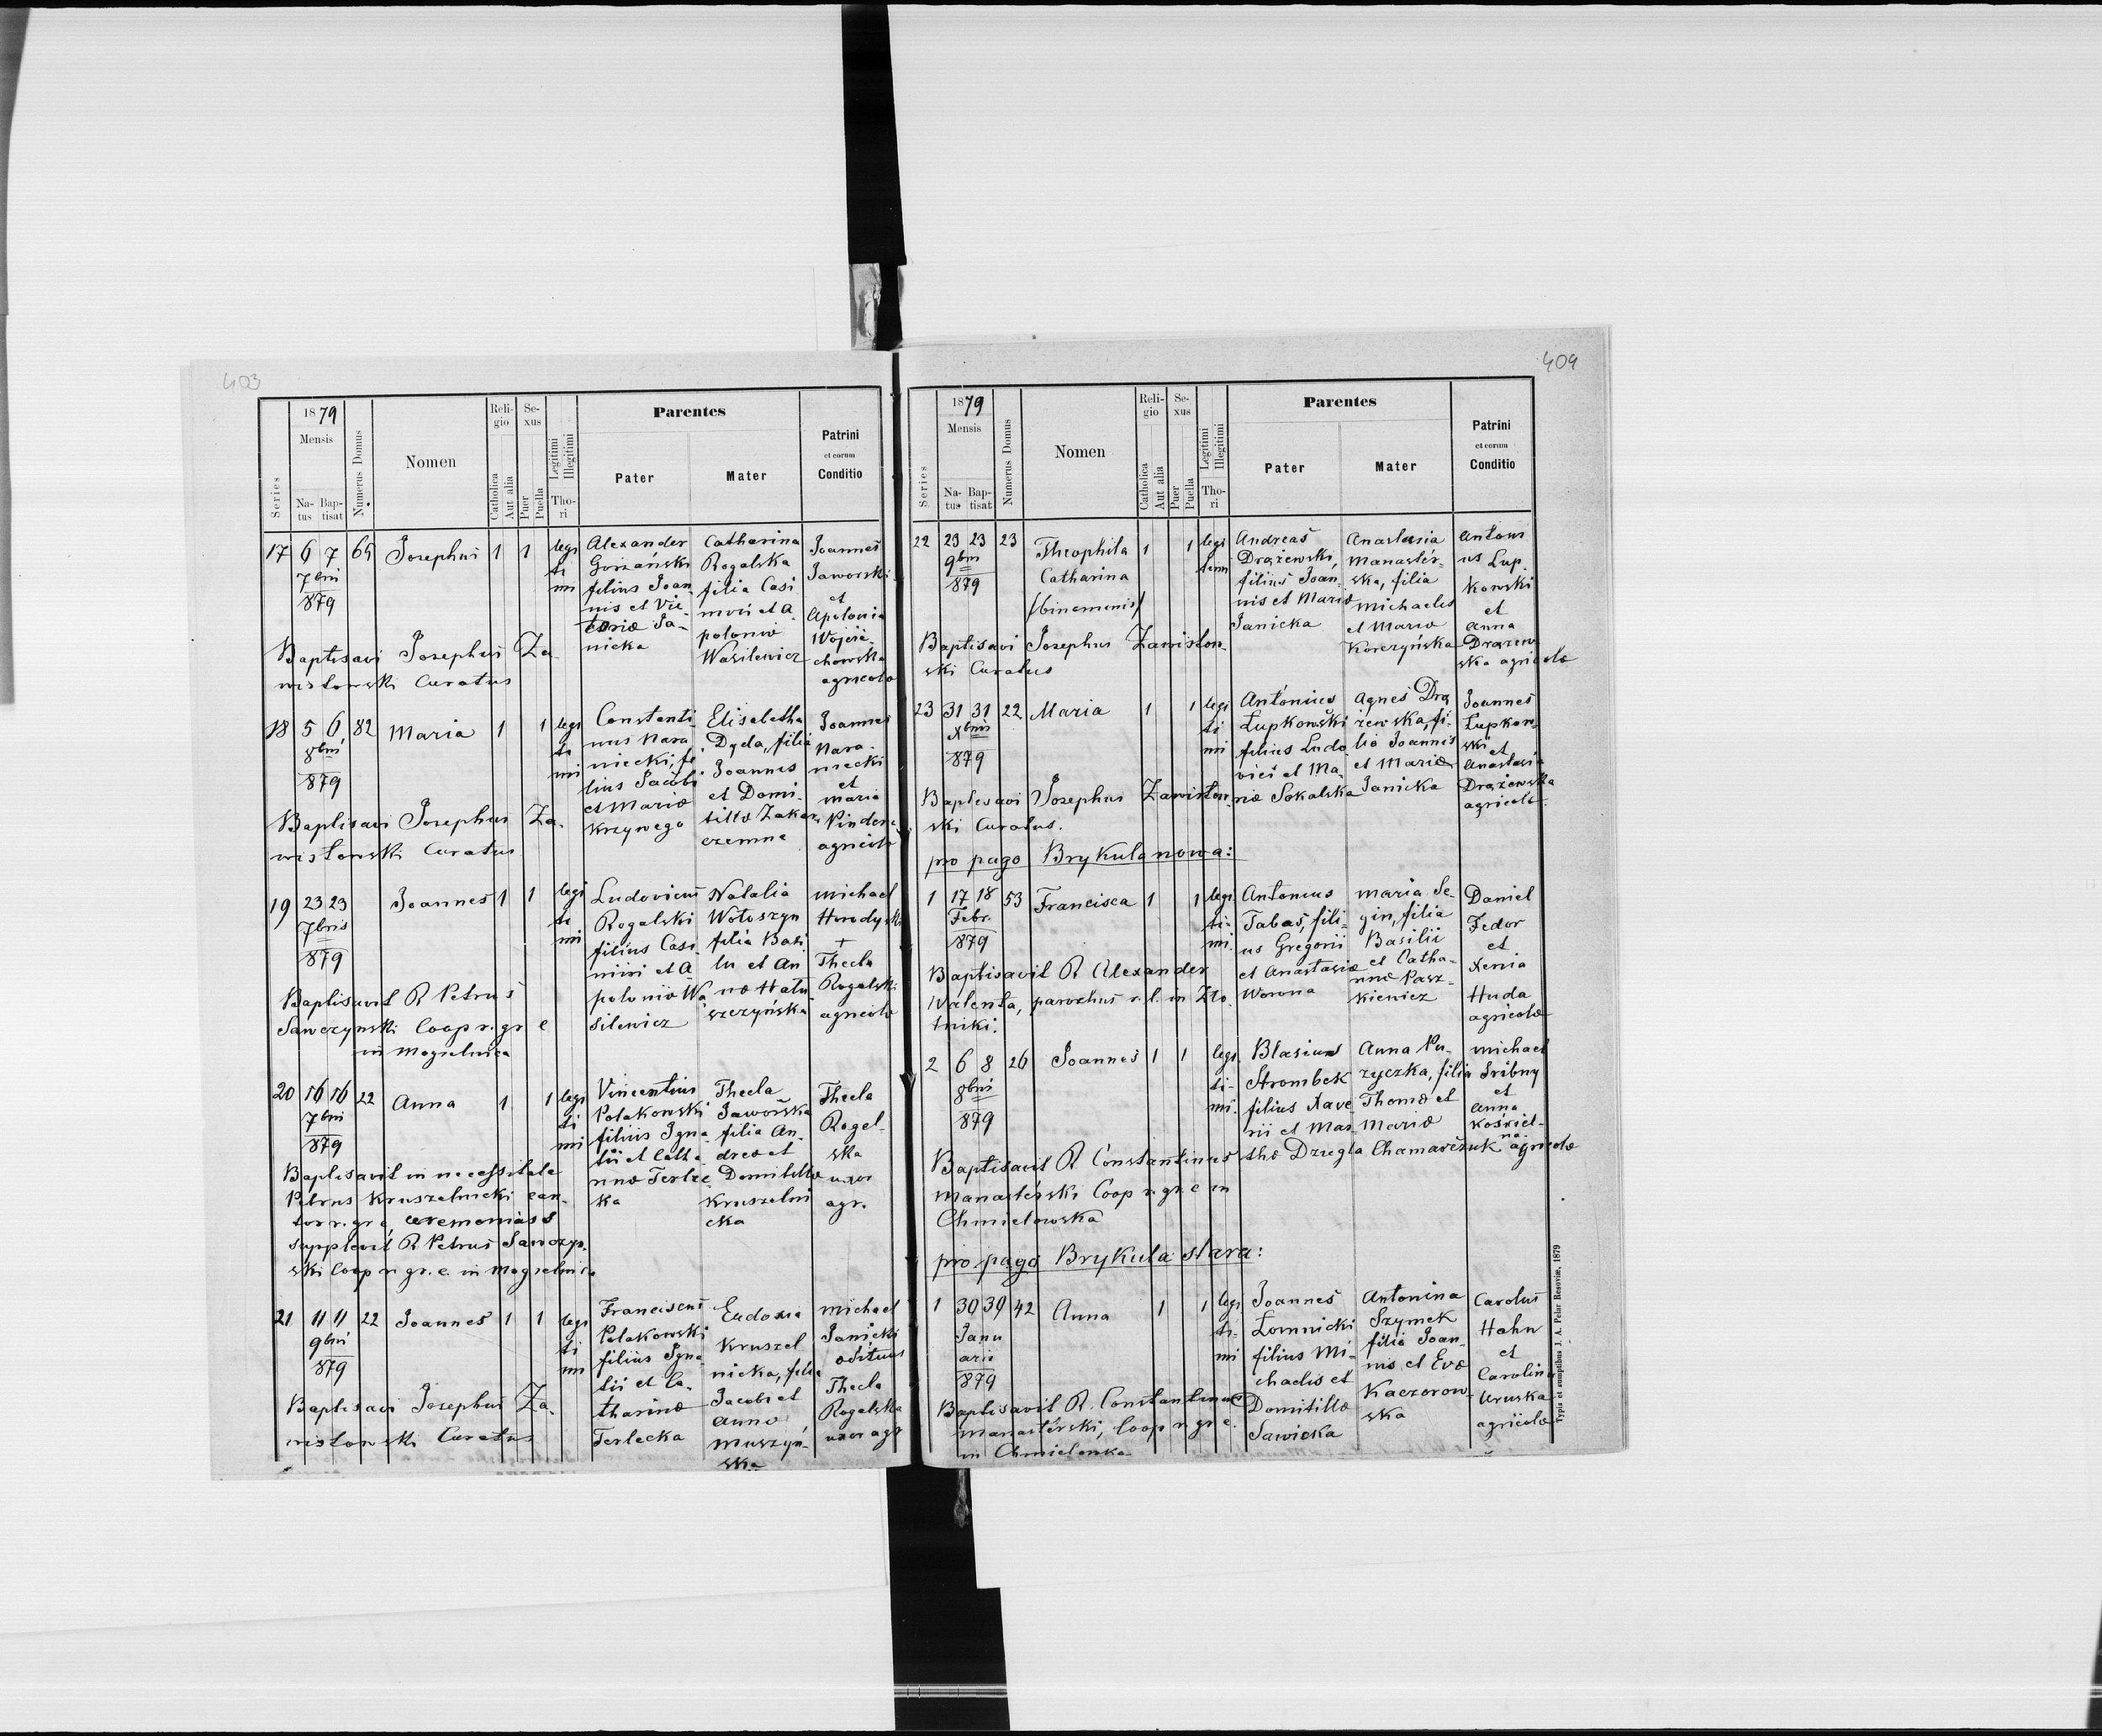 403
1879
Mensis
Series
Na-
tus
Bap-
tisat
Numerus Domus
Nomen
Reli-
gio
Catholica
Aut alia
Se-
xus
Puer
Puella
Legitimi
Illegitimi
Tho-
ri
Parentes
Pater
Mater
Patrini
et eorum
Conditio
17 6 7 65 Josephus 1 1
7bris
879
legi
ti
mi
Alexander
Gorzański
filius Joan
nis et Vic
toriæ Ja-
nicka
Catharina
Rogalska
filia Casi
miri et A
poloniæ
Wasilewicz
Joannes
Jaworski
et
Apolonia
Wojcie-
chowska
agricolæ
Baptisavi Josephus Za
wistowski Curatus
18 5 6 82 Maria 1 1
8bris
879
legi
ti
mi
Constanti-
nus Nara
niecki, fi
lius Jacobi
et Mariæ
Krzywego
Elisabetha
Dyda, filia
Joannis
et Domi-
tillæ Zakar
czemna
Joannes
Nara-
niecki
et
Maria
Pindera
agricolæ
Baptisavi Josephus Za-
wistowski Curatus
19 23 23 Joannes 1 1
7bris
879
legi
ti
mi
Ludovicus
Rogalski
filius Casi
miri et A
poloniæ Wa
silewicz
Natalia
Wołoszyn
filia Basi
lii et An
næ Hatu
szczyńska
Michael
Horodyski
+
Thecla
Rogalski
agricolæ
Baptisavit R Petrus
Sawczynski Coop r. gr c
in Mogielnica
20 16 16 22 Anna 1 1
7bris
879
legi
ti
mi
Vincentius
Polakowski
filius Igna
tii et Catha
rinæ Terlec
ka
Thecla
Jaworska
filia An-
dreæ et
Domitillæ
Kruszelni
cka
Thecla
Rogal-
ska
uxor
agr.
Baptisavit in necessitate
Petrus Kruszelnicki can-
tor r. gr c, ceremonias
supplevit R Petrus Sawczyn-
ski Coop r. gr. c. in Mogielnica
21 11 11 22 Joannes 1 1
9bris
879
legi
ti
mi
Franciscus
Polakowski
filius Igna
tii et Ca-
tharinæ
Terlecka
Eudoxia
Kruszel
nicka, filia
Jacobi et
Annæ
Muszyń-
ska
Michael
Janicki
ædituus
Thecla
Rogalska
uxor agr
Baptisavi Josephus Za-
wistowski Curatus
409
1879
Mensis
Series
Na-
tus
Bap-
tisat
Numerus Domus
Nomen
Reli-
gio
Catholica
Aut alia
Se-
xus
Puer
Puella
Legitimi
Illegitimi
Tho-
ri
Parentes
Pater
Mater
Patrini
et eorum
Conditio
22 23 23 23 Theophila 1 1
9bris
879
Catharina
/binominis/
legi
timi
Andreas
Drążewski,
filius Joan-
nis et Mariæ
Janicka
Anastasia
Manaster-
ska, filia
Michaelis
et Mariæ
Korczyńska
Antoni
us Łup-
kowski
et
Anna
Drążew-
ska agricolæ
Baptisavi Josephus Zawistow-
ski Curatus
23 31 31 22 Maria 1 1
xbris
879
legi
ti
mi
Antonius
Łupkowski
filius Ludo
vici et Ma-
riæ Sokalska
Agnes Drą
żewska, fi-
lia Joannis
et Mariæ
Janicka
Joannes
Łupkow-
ski
et
Anastasia
Drążewska
agricolæ
Baptisavi Josephus Zawistow-
ski Curatus.
pro pago Brykula nowa:
1 17 18 53 Francisca 1 1
Febr.
879
legi
ti-
mi.
Antonius
Tabas, fili-
us Gregorii
et Anastasiæ
Worona
Maria Se-
gin, filia
Basilii
et Catha-
rinæ Pasz-
kiewicz
Daniel
Fedor
et
Xenia
Huda
agricolæ
Baptisavit R Alexander
Walenta, parochus r. l. in Zło-
tniki.
2 6 8 26 Joannes 1 1
8bris
879
legi
ti-
mi.
Blasius
Strombek
filius Xave
rii et Mar-
thæ Dziegla
Anna Pu-
zyczka, filia
Thomæ et
Mariæ
Chamarczuk
Michael
Sribny
et
Anna
Kościel-
na
agricolæ
Baptisavit R Constantinus
Manasterski Coop r. gr. c in
Chmielowska
pro pago Brykula stara:
1 30 39 42 Anna 1 1
Janu
arii
879
legi
ti-
mi
Joannes
Łomnicki
filius Mi-
chaelis et
Domitillæ
Sawicka
Antonina
Szymek
filia Joan-
nis et Evæ
Kaczorow-
ska
Carolus
Hahn
et
Carolina
Uruska
agricolæ
Baptisavit R. Constantinus
Manasterski, Coop r. gr c.
in Chmielowka
Typis et sumptibus J. A. Pelar Resoviæ, 1879